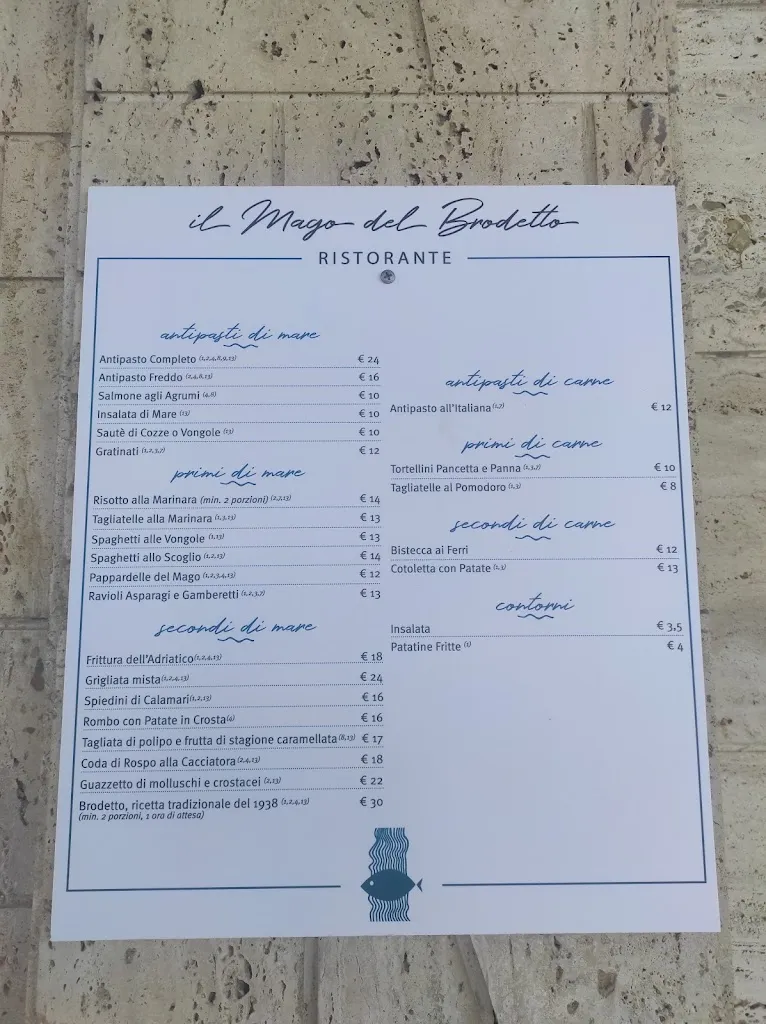 il Mago del Brodetto
RISTORANTE
antipasti di mare
Antipasto Completo (1,2,4,8,9,13) € 24
Antipasto Freddo (2,4,8,13) € 16
Salmone agli Agrumi (4,8) € 10
Insalata di Mare (13) € 10
Sautè di Cozze o Vongole (13) € 10
Gratinati (1,2,3,7) € 12
primi di mare
Risotto alla Marinara (min. 2 porzioni) (2,7,13) € 14
Tagliatelle alla Marinara (1,3,13) € 13
Spaghetti alle Vongole (1,13) € 13
Spaghetti allo Scoglio (1,2,13) € 14
Pappardelle del Mago (1,2,3,4,13) € 12
Ravioli Asparagi e Gamberetti (1,2,3,7) € 13
secondi di mare
Frittura dell'Adriatico (1,2,4,13) € 18
Grigliata mista (1,2,4,13) € 24
Spiedini di Calamari (1,2,13) € 16
Rombo con Patate in Crosta (4) € 16
Tagliata di polipo e frutta di stagione caramellata (8,13) € 17
Coda di Rospo alla Cacciatora (2,4,13) € 18
Guazzetto di molluschi e crostacei (2,13) € 22
Brodetto, ricetta tradizionale del 1938 (1,2,4,13) € 30
(min. 2 porzioni, 1 ora di attesa)
antipasti di carne
Antipasto all'Italiana (1,7) € 12
primi di carne
Tortellini Pancetta e Panna (1,3,7) € 10
Tagliatelle al Pomodoro (1,3) € 8
secondi di carne
Bistecca ai Ferri € 12
Cotoletta con Patate (1,3) € 13
contorni
Insalata € 3,5
Patatine Fritte (1) € 4